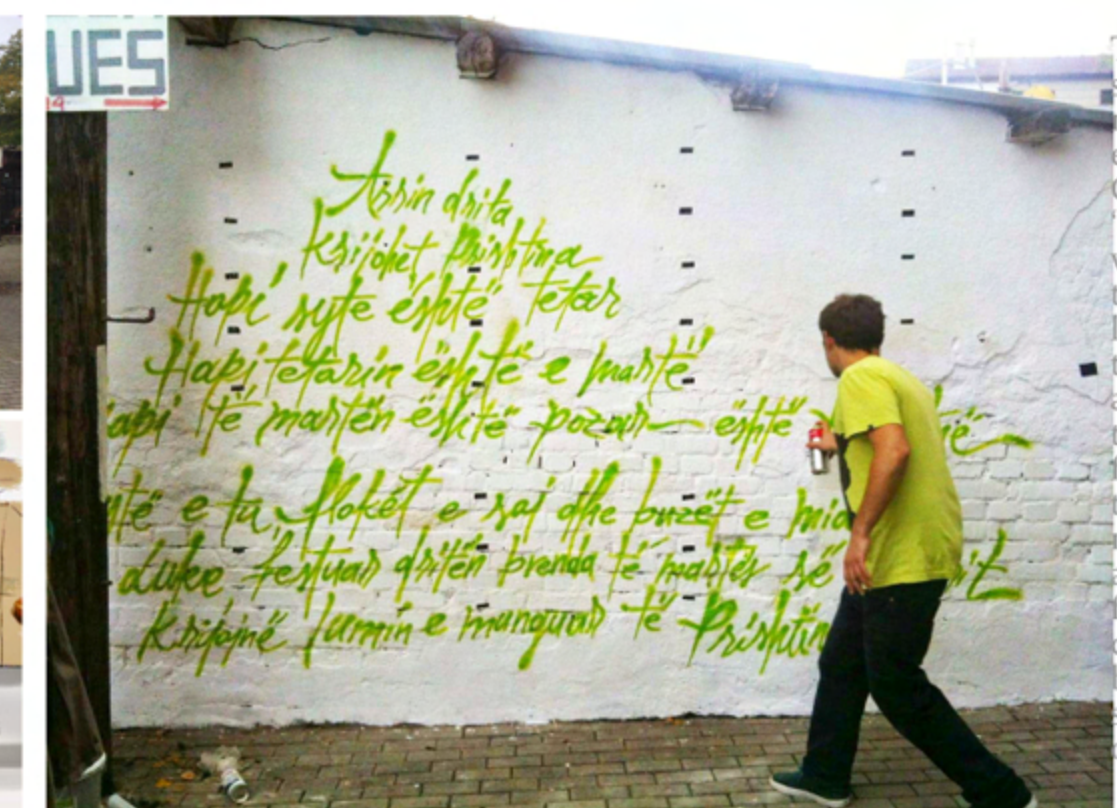 UES
Arrin drita
Krijohet Prishtina
Hapi sytë është tetar
Hapi tetarin është e martë
api të martën është pozar është
të e ta flokët e saj dhe buzët e mia
duke festuar dritën brenda të martës së
Krijojnë lumin e munguar të Prishtin